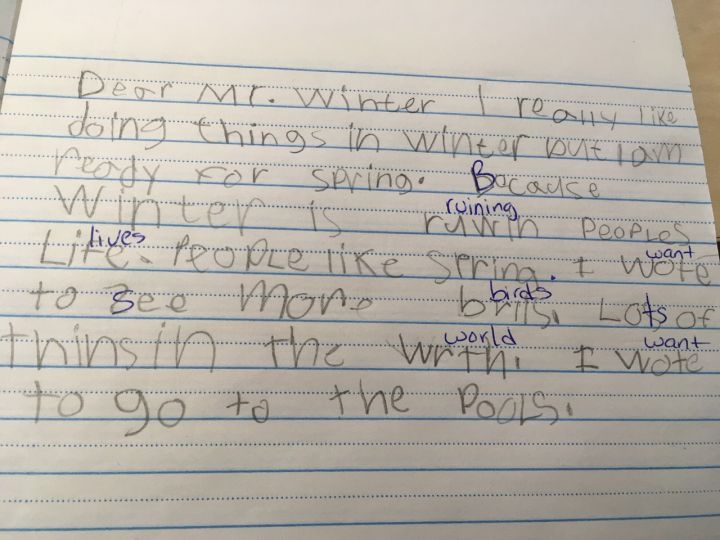 Dear Mr. Winter I really like
doing things in winter but I am
ready for spring. Bocause
ruining
Winter is ruwin PeoPles
lives want
Life. PeoPLe like Spring. I wote
birds
to See More brits. Lots of
world want
thinsin the wrth. I wote
to go to the Pools.